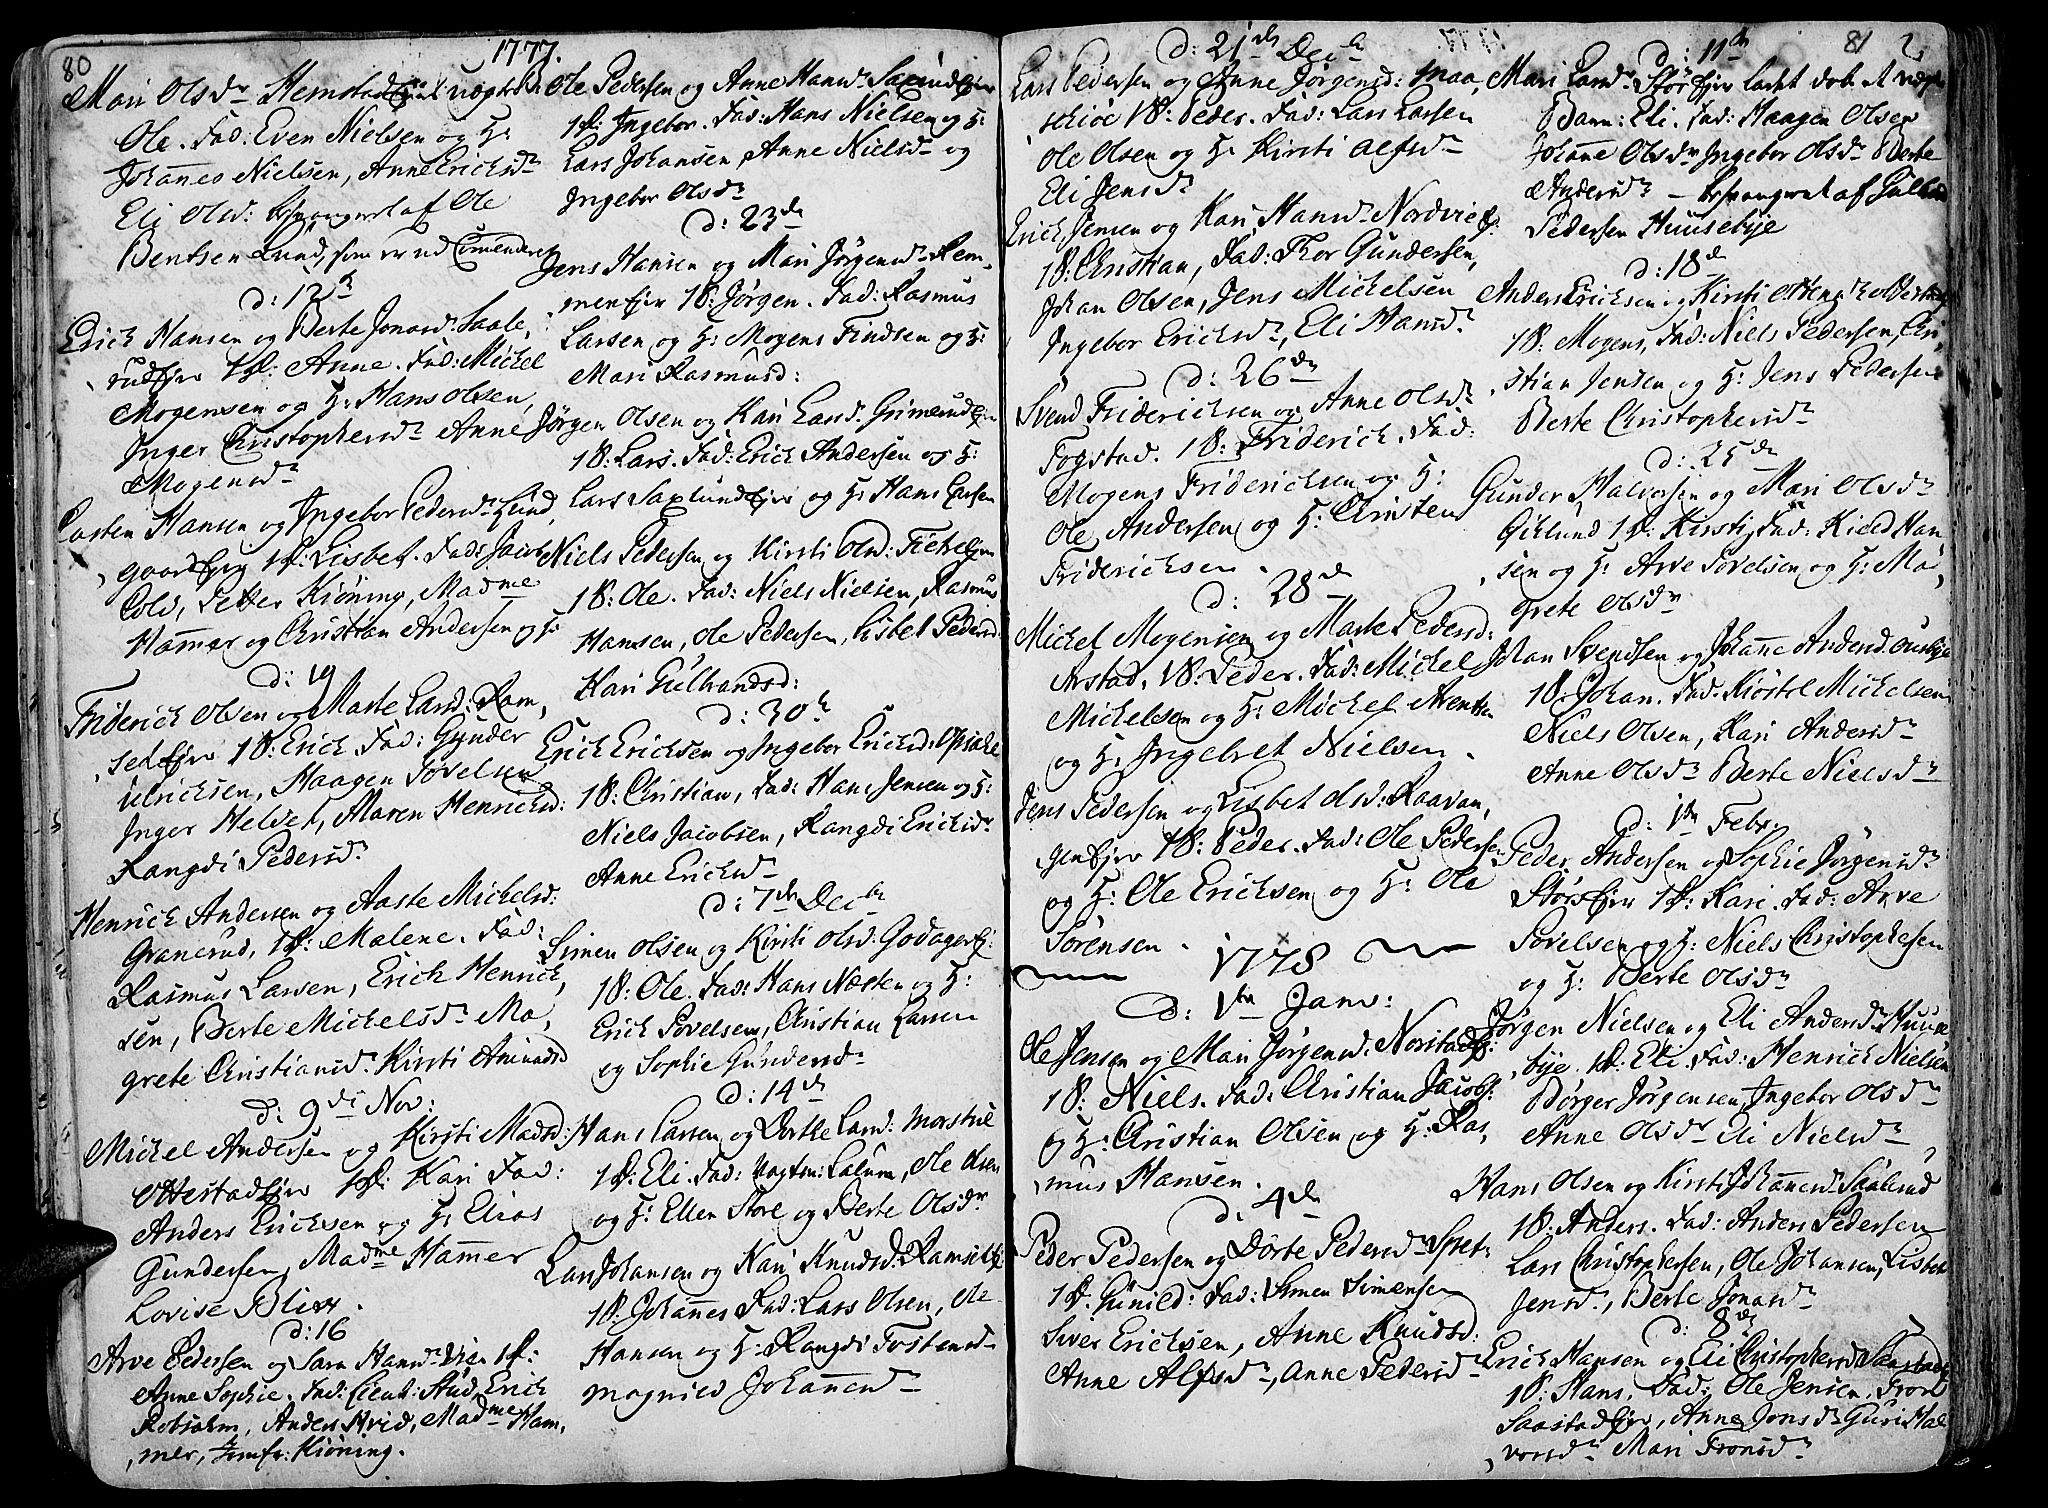 80
1777.
Mari Olsdr Hemstad
Ole. Fad: Even Nielsen og H:
Johannes Nielsen, Anne Ericksdr
Eli Olsd: af Ole
Bentsen Lund, som
d: 12th
Erich Hansen og Berte Jonasd: Saale,
rudejer 1 P: Anne. Fad: Michel
Mogensen og H: Hans Olsen,
Inger Christophersdr Anne
Mogensdr
Carsten Hansen og Ingebor Pedersdr Lund,
gaardejer 1 P: Lisbet. Fad: Jacob
Cold, Petter Kiöning, Madme
Hammer og Christian Andersen og H:
d: 19
Friderich Olsen og Marte Larsd: Ram,
sethejer 1 P: Erich. Fad: Gunder
Ulrichsen, Haagen Povelsen
Inger Helset, Maren Henrichsd:
Rangdi Pedersdr
Henrich Andersen og Aaste Michelsd:
Granerud, 1 P: Malene. Fad:
Rasmus Larsen, Erich Henrich,
sen, Berte Michelsdr Ma,
grete Christiansd: Kirsti Amundsd
d: 9de Nov:
Michel Andersen og Kirsti Madsd:
Ottestadejer 1 P: Kari Fad:
Anders Erichsen og H: Elias
Gundersen, Madme Hammer
Lovise Blix.
d: 16
Arve Pedersen og Sara Hansdr 1 P:
Anne Sophie. Fad: Lieut: Stud, Erich
Rotsholm, Anders Hvid, Madme Ham,
mer, Jomfr: Kiöning.
Ole Pedersen og Anne Hansdr Saxlundejer
1 P: Ingebor. Fad: Hans Nielsen og H:
Lars Johansen, Anne Nielsdr og
Ingebor Olsdr
d: 23de
Jens Hansen og Mari Jörgensdr Rem,
menejer 1 P: Jörgen. Fad: Rasmus
Larsen og H: Mogens Findsen og H:
Mari Rasmusd:
Jörgen Olsen og Kari Larsd: Grimerudejer
1 P: Lars. Fad: Erich Andersen og H:
Lars Saxlundejer og H: Hans Larsen
Niels Pedersen og Kirsti Olsd:
1 P: Ole. Fad: Niels Nielsen, Rasmus
Hansen, Ole Pedersen, Lisbet Pedersd:
Kari Gulbrandsd:
d: 30th
Erich Erichsen og Ingebor Erichsd: Opsahl
1 P: Christian, Fad: Hans Jensen og H:
Niels Jacobsen, Rangdi Erichsdr
Anne Erichsdr
d: 7de Decbr
Simen Olsen og Kirsti Olsd: Godagerej:
1 P: Ole. Fad: Hans Næsten og H:
Erich Povelsen, Christian Larsen
og Sophie Gundersdr
d: 14de
Hans Larsen og Dorthe Larsd: Morstue
1 P: Eli. Fad: Lalum, Ole Olsen
og H: Ellen Store og Berte Olsdr
Lars Johansen og Kari Knudsd: Ramsetej
1 P: Johannes Fad: Lars Olsen, Ole
Hansen og H: Rangdi Tostensdr
Magnild Johannesdr
81
d: 21de Decbr
Lars Pedersen og Anne Jörgensd: Maa,
schiöe 1 P: Peder. Fad: Lars Larsen
Ole Olsen og H: Kirsti Alfsdr
Eli Jensdr
Erich Jensen og Kari Hansdr Nordviej:
1 P: Christian, Fad: Thor Gundersen,
Johan Olsen, Jens Michelsen
Ingebor Ericksdr, Eli Hansdr
d: 26de
Svend Friderichsen og Anne Olsdr
Fogstad. 1 P: Friderich. Fad:
Mogens Friderichsen og H:
Ole Andersen og H: Christen
Friderichsen.
d: 28de
Michel Mogensen og Marte Pedersd:
Arstad. 1 P: Peder. Fad: Michel
Michelsen og H: Michel Arentsen
og H: Ingebret Nielsen.
Jens Pedersen og Lisbet Olsd: Raavan,
genejer 1 P: Peder. Fad: Ole Pedersen
og H: Ole Erichsen og H: Ole
Sörensen.
1778
d: 1te Janv:
Ole Jensen og Mari Jörgensd: Norstadej:
1 P: Niels. Fad: Christian Jacobs:
og H: Christian Olsen og H: Ras,
mus Hansen.
d: 4de
Peder Pedersen og Dörte Pedersdr
1 P: Gunild: Fad: Simen Simensen
Siver Erichsen, Anne Knudsd:
Anne Alfsdr, Anne Pedersdr
d: 11te
Mari Larsdr Störsejer ladet döb. et
Barn: Eli. Fad: Haagen Olsen
Johanne Olsdr Ingebor Olsdr Berte
Andersdr af Gulbrand
Pedersen Huusebye
d: 18de
Anders Erichsen og Kirsti
1 P: Mogens, Fad: Niels Pedersen, Chri,
stian Jensen og H: Jens Pedersen
Berte Christophersdr
d: 25de
Gunder Halversen og Mari Olsdr
1 P: Kirsti, Fad: Kield Han
sen og H: Arve Povelsen og H: Ma,
grete Olsdr
Johan Svendsen og Johanne Andersd:
1 P: Johan. Fad: Kiöstel Michelsen
Niels Olsen, Kari Andersdr
Anne Olsdr Berte Nielsdr
d: 1te Febr.
Peder Andersen og Sophie Jörgensdr
Störsejer 1 P: Kari. Fad: Arve
Povelsen og H: Niels Christophersen
og H: Berte Olsdr
Jörgen Nielsen og Eli Andersdr Huuse
bye. 1 P: Eli. Fad: Henrich Nielsen
Börger Jörgensen, Ingebor Olsdr
Anne Olsdr Eli Nielsdr
Hans Olsen og Kirsti Johannesdr Saalerud
1 P: Anders. Fad: Anders Pedersen
Lars Christophersen, Ole Johansen, Lisbet
Jensdr, Berte Jonasdr
d: 8de
Erich Hansen og Eli Christophersd: Saastadej
1 P: Hans. Fad: Ole Jensen, Fron
Saastadejer, Anne Jonsdr Guri Hal
vorsdr Mari Fronsdr